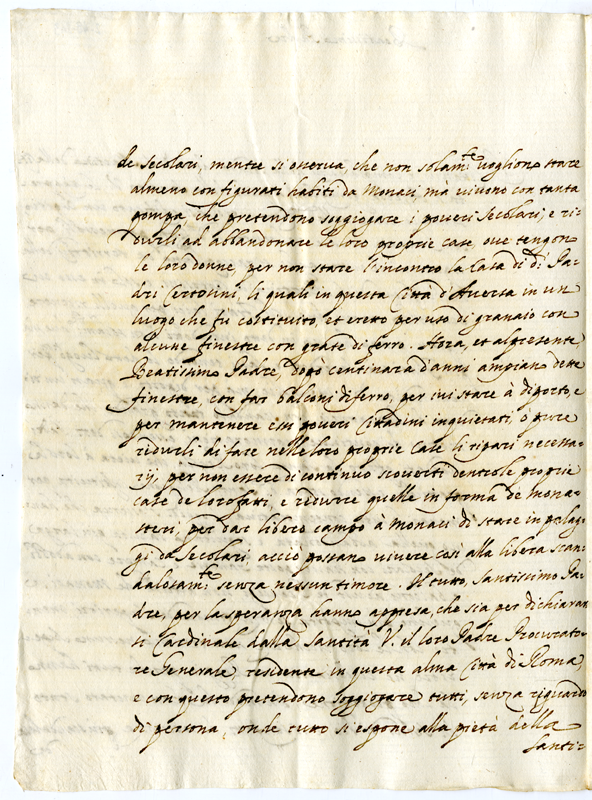 de secolari, mentre si osserva, che non solam.te vogliono stare
almeno con figurati habiti da Monaci, mà vivono con tanta
pompa, che pretendono soggiogare i poveri secolari, e ri=
durli ad abbandonare le loro proprie case, ove tengono
le loro donne, per non stare l'incontro la Casa di d.i Pa=
dri Certosini, li quali in questa Città d'Aversa in un
luogo che fu costituito, et eretto per uso di granaio con
alcune finestre con grate di ferro. Hora, et al presente
Beatissimo Padre, dopò centinara d'anni ampiano dette
finestre, con far balconi di ferro, per ivi stare à diporto, e
per mantenere essi poveri Cittadini inquietati, ò pure
redurli di fare nelle loro proprie Case li ripari necessa=
rij, per non essere di continuo scoverti dentro le proprie
case de loro fatti, e redurre quelle in forma de mona=
steri, per dar libero campo à Monaci di stare in palag=
gi da Secolari, acciò possano vivere così alla libera scan=
dalosam.te senza nessun timore. Il tutto, Santissimo Pa=
dre, per la speranza hanno appresa, che sia per dichiarar=
si Cardinale dalla Santità V. il loro Padre Procurato=
re Generale, residente in questa alma Città di Roma,
e con questo pretendono soggiogare tutti, senza riguardo
di persona, onde tutto si espone alla pietà della
Santi=